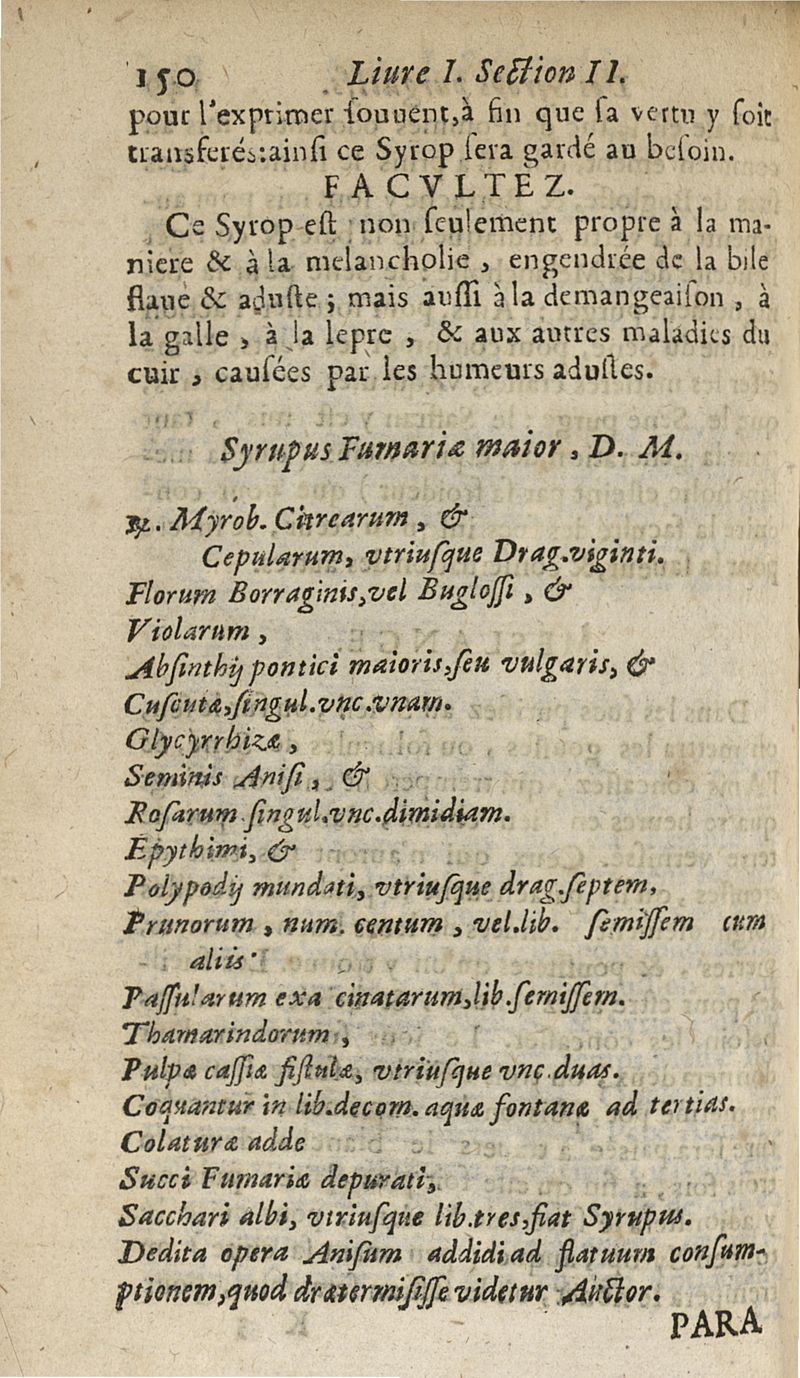 150 Liure I. Section II.
pour l'exprimer souuent,à fin que sa vertu y soit
transferés:ainsi ce Syrop sera gardé au besoin.
FACVLTEZ.
Ce Syrop est non seulement propre à la ma-
niere & à la melancholie , engendrée de la bile
flaue & aduste ; mais aussi à la demangeaison , à
la galle , à la lepre , & aux autres maladies du
cuir , causées par les humeurs adustes.
Syrupus Fumariæ maior , D. M.
℞. Myrob. Citrearum , &
Cepularum, vtriusque Drag.viginti.
Florum Borraginis,vel Buglossi , &
Violarum ,
Absinthij pontici maioris,seu vulgaris, &
Cuscutæ,singul.vnc.vnam.
Glycyrrhizæ ,
Seminis Anisi , &
Rosarum singul.vnc.dimidiam.
Epythimi, &
Polypodij mundati, vtriusque drag.septem,
Prunorum , num. centum , vel.lib. semissem cum
aliis
Passularum exa cinatarum,lib.semissem.
Thamarindorum ,
Pulpæ cassiæ fistulæ, vtriusque vnc.duas.
Coquantur in lib.decem. aquæ fontanæ ad tertias.
Colaturæ adde
Succi Fumariæ depurati,
Sacchari albi, vtriusque lib.tres,fiat Syrupus.
Dedita opera Anisum addidi ad flatuum consum-
ptionem,quod prætermisisse videtur Auctor.
PARA